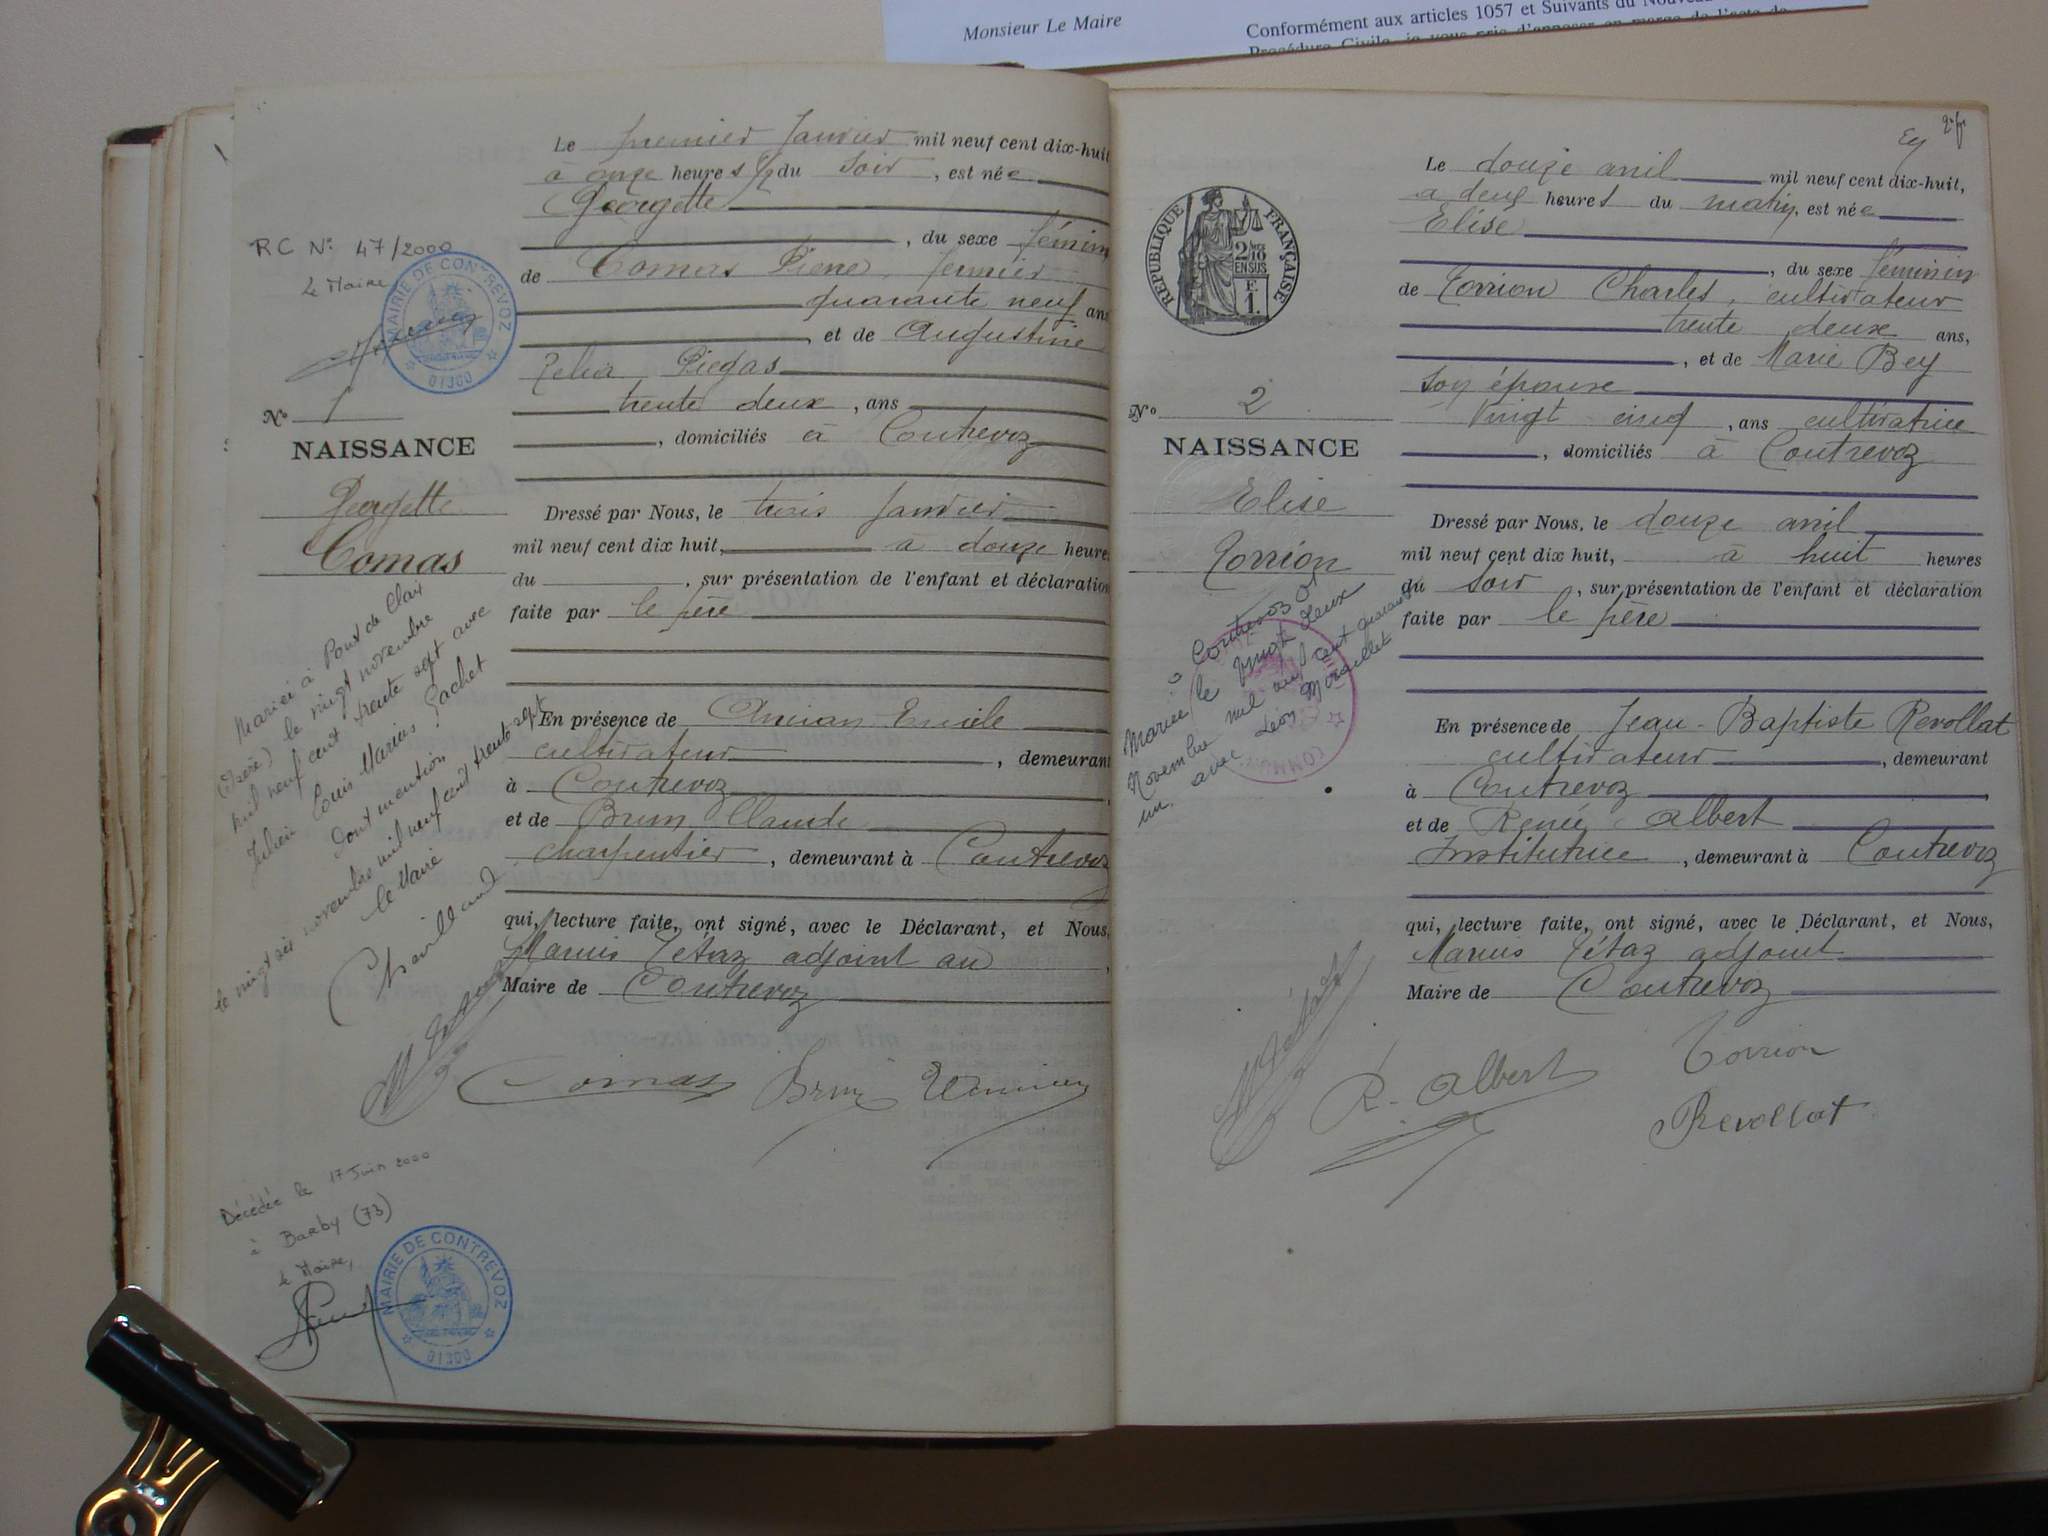 Monsieur Le Maire
Conformément aux articles 1057 et Suivants du Nouveau
Procédure Civile, je vous prie d'apposer en marge de l'acte de
RC N° 47/2000
Le Maire
MAIRIE DE CONTREVOZ
01300
N° 1
NAISSANCE
Georgette
Comas
Mariée à Pont de Claix
(Isère) le vingt novembre
mil neuf cent trente sept avec
Julien Louis Marius Gachet
dont mention
le vingt six novembre mil neuf cent trente sept
Le Maire
Le premier Janvier mil neuf cent dix-huit
à onze heures 1/2 du soir, est née
Georgette
, du sexe féminin
de Comas Pierre, fermier
quarante neuf ans
, et de Augustine
Piegas
trente deux, ans
, domiciliés à Contrevoz
Dressé par Nous, le trois Janvier
mil neuf cent dix huit, à douze heures
du , sur présentation de l'enfant et déclaration
faite par le père
En présence de Emile
cultivateur, demeurant
à Contrevoz
et de Brun Claude
charpentier, demeurant à Contrevoz
qui, lecture faite, ont signé, avec le Déclarant, et Nous,
Marius Tétaz adjoint au
Maire de Contrevoz
M Tétaz
Comas Brun
Décédée le 17 Juin 2000
à Barby (73)
Le Maire,
MAIRIE DE CONTREVOZ
01300
REPUBLIQUE FRANÇAISE
2/10
EN SUS
F.
1.
N° 2
NAISSANCE
Elise
Torrion
Mariée à Contrevoz
le vingt deux
Novembre mil neuf cent quarante
un, avec Léon
Le douze avril mil neuf cent dix-huit,
à deux heures du matin, est née
Elise
, du sexe féminin
de Torrion Charles, cultivateur
trente deux ans,
, et de Marie Bey
son épouse
vingt cinq, ans cultivatrice
, domiciliés à Contrevoz
Dressé par Nous, le douze avril
mil neuf cent dix huit, à huit heures
du soir, sur présentation de l'enfant et déclaration
faite par le père
En présence de Jean-Baptiste Revollat
cultivateur, demeurant
à Contrevoz
et de Renée Albert
Institutrice, demeurant à Contrevoz
qui, lecture faite, ont signé, avec le Déclarant, et Nous,
Marius Tétaz adjoint
Maire de Contrevoz
M Tétaz
R. Albert
Torrion
Revollat